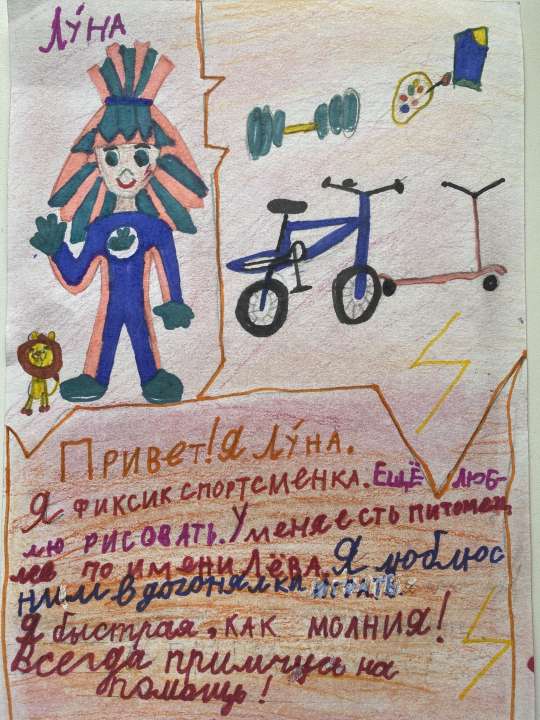 ЛУ́НА
ПРИВЕТ! Я ЛУ́НА.
Я ФИКСИК СПОРТСМЕНКА. ЕЩЁ ЛЮБ-
лю РИСОВАТЬ. У меня есть питомец
лев по имени Лёва. Я люблю с
ним в догонялки ИГРАТЬ.
Я быстрая, КАК МОЛНИЯ!
Всегда примчусь на
помощь!